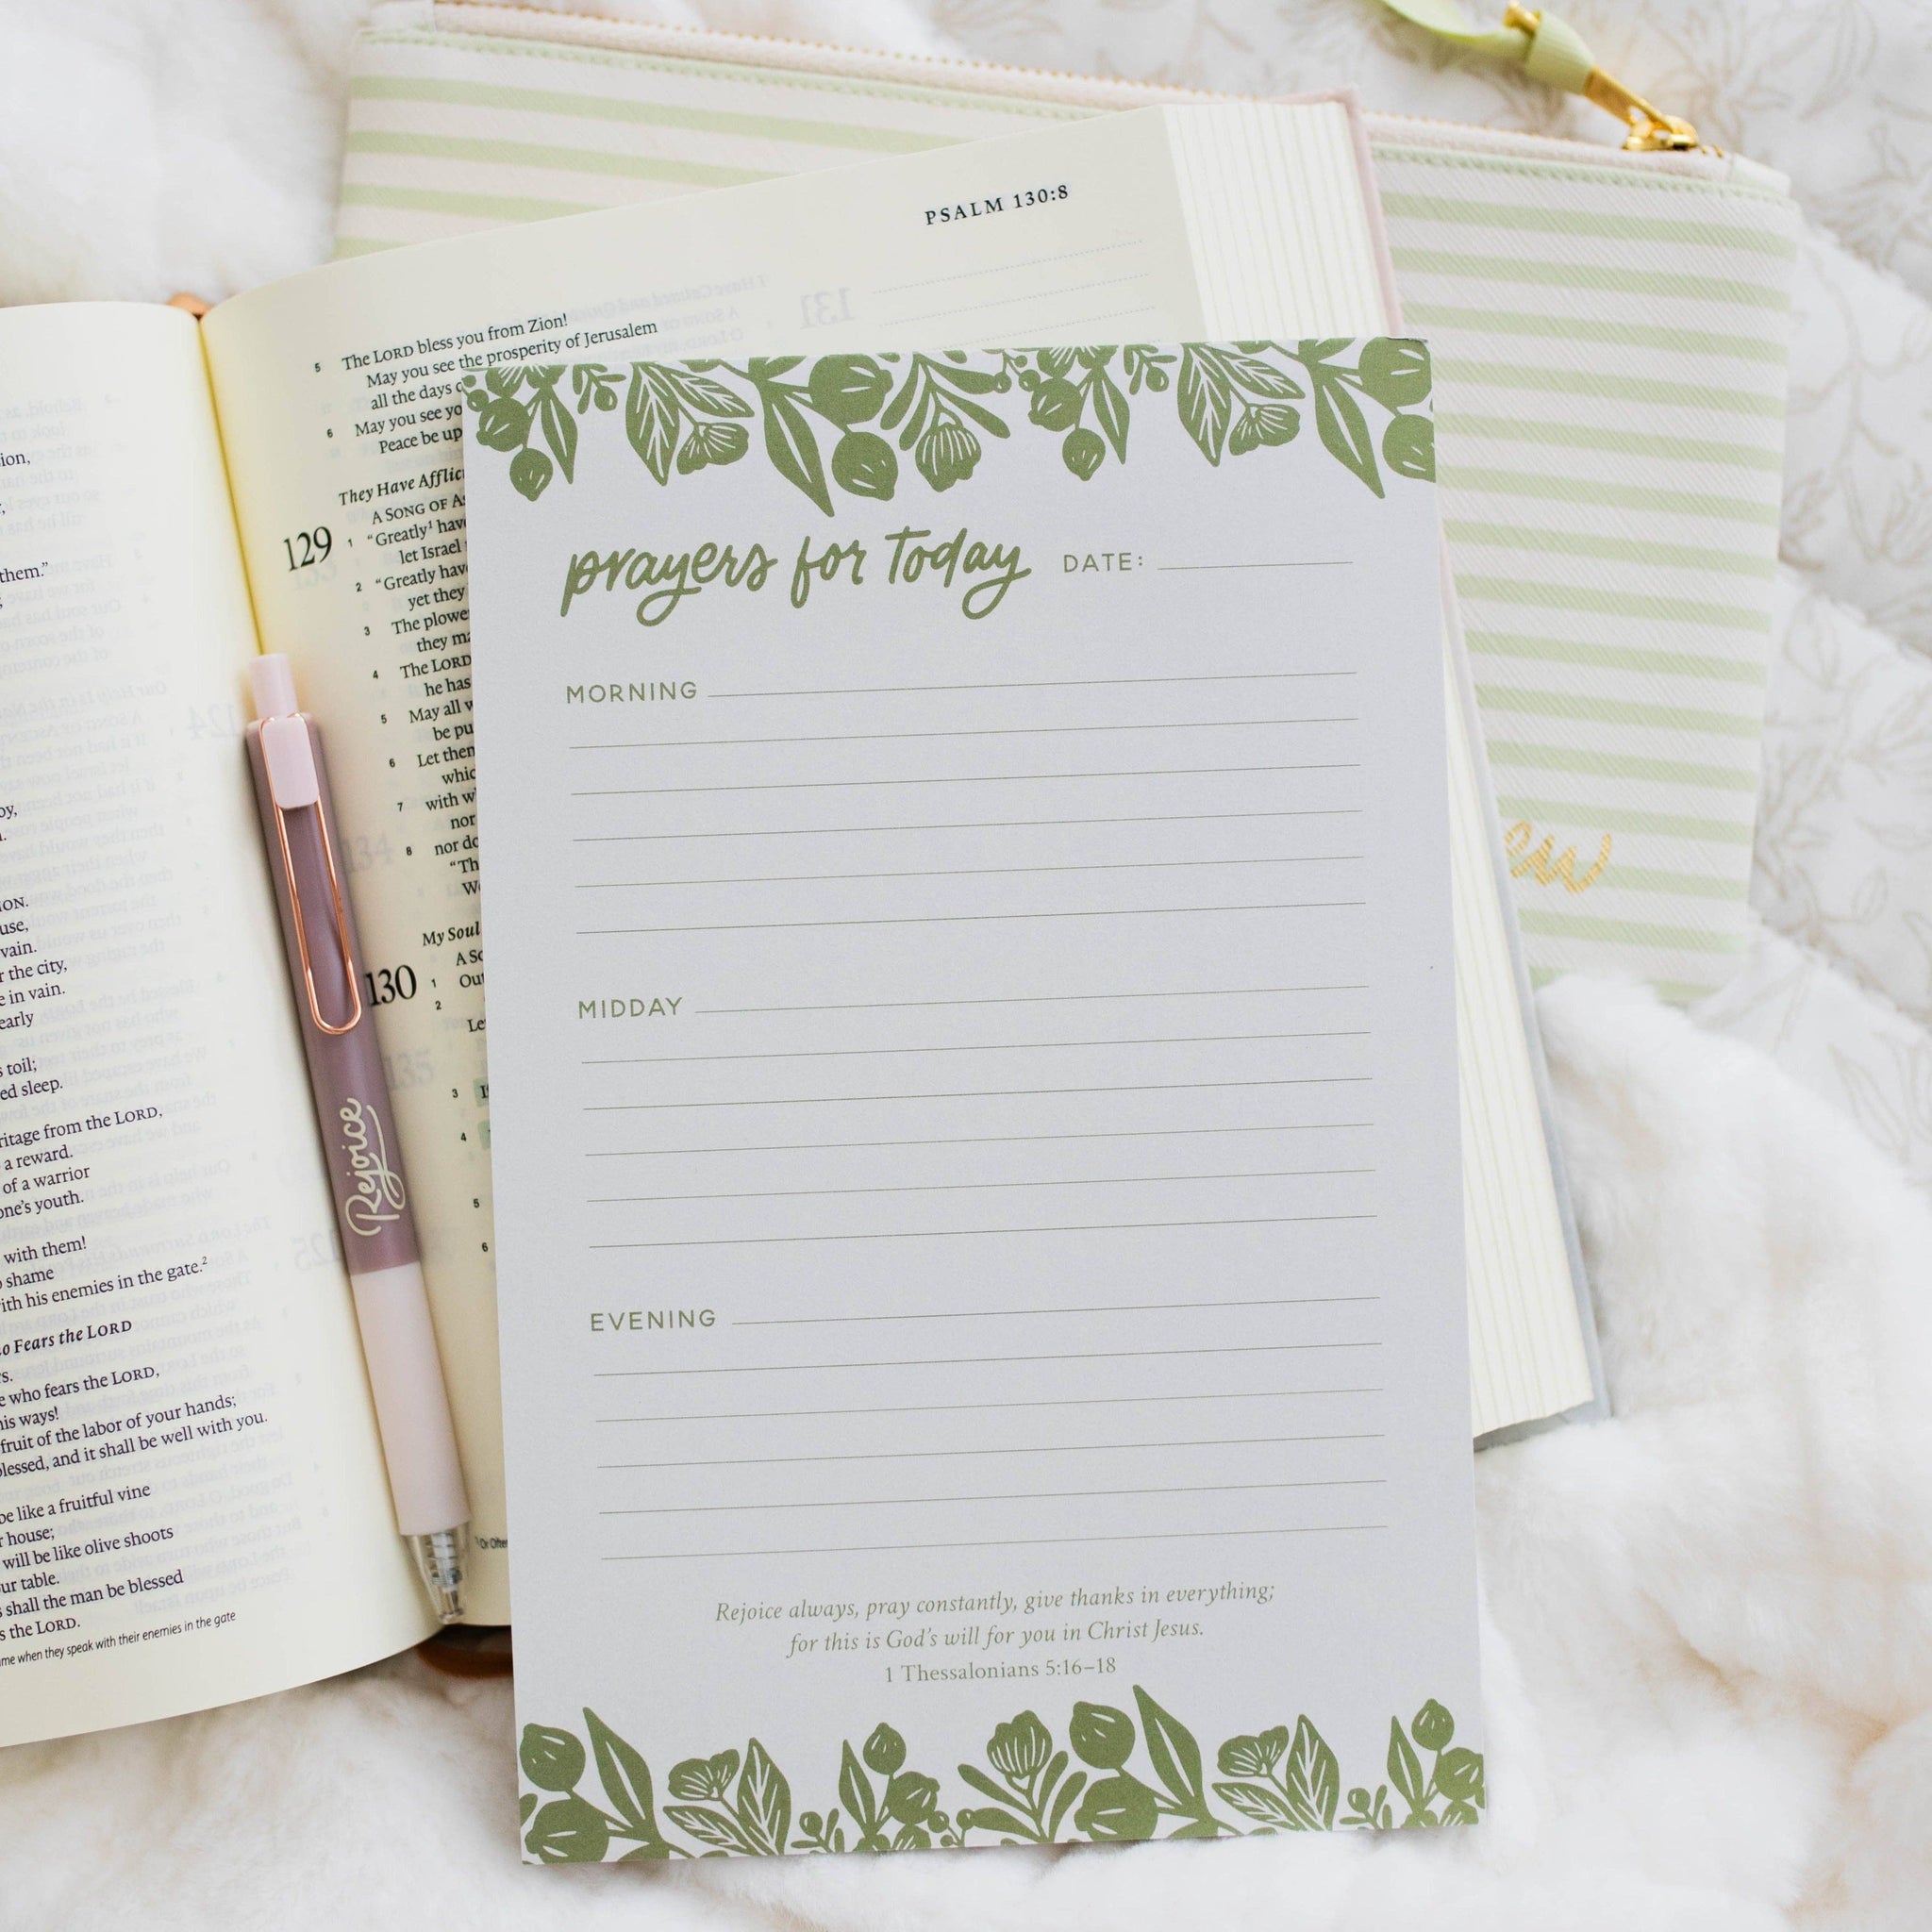 ion,
them."
oy,
ION.
use,
vain.
r the city,
e in vain.
early
s toil;
ed sleep.
ritage from the LORD,
a reward.
of a warrior
one's youth.
with them!
o shame
ith his enemies in the gate.²
o Fears the LORD
rs.
e who fears the LORD,
his ways!
fruit of the labor of your hands;
blessed, and it shall be well with you.
be like a fruitful vine
r house;
will be like olive shoots
ur table.
s shall the man be blessed
s the LORD.
me when they speak with their enemies in the gate
PSALM 130:8
5 The LORD bless you from Zion!
May you see the prosperity of Jerusalem
all the days
6 May you see yo
Peace be up
They Have Afflic
129 A SONG OF AS
1 "Greatly¹ hav
let Israel
2 "Greatly hav
yet they
3 The plowe
they ma
4 The LORD
he has
5 May all w
be pu
6 Let them
whic
7 with w
nor
8 nor do
"Th
W
My Soul
130 A SO
1 Out
2
Le
3 I
4
5
6
¹ Or Often
Rejoice
prayers for today DATE:
MORNING
MIDDAY
EVENING
Rejoice always, pray constantly, give thanks in everything;
for this is God's will for you in Christ Jesus.
1 Thessalonians 5:16–18
ew